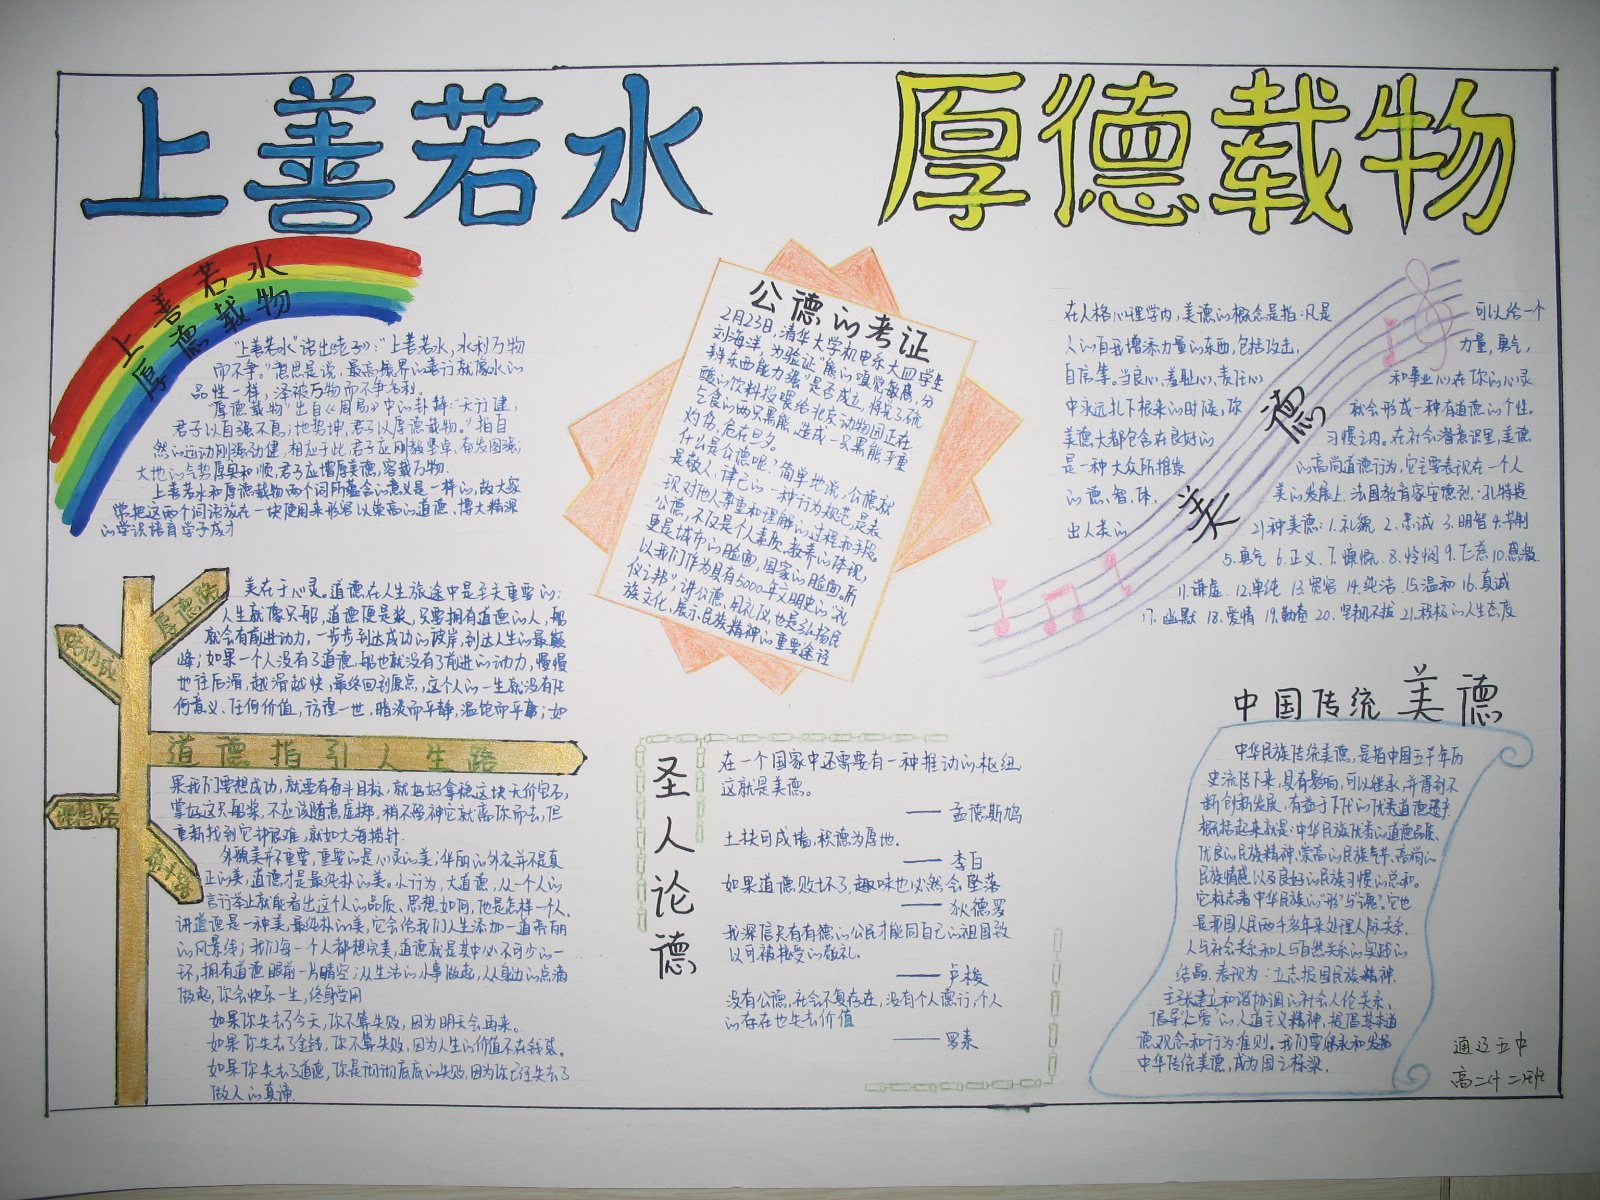 上善若水 厚德载物
上善若水
厚德载物
"上善若水"语出《老子》:"上善若水,水利万物
而不争。"意思是说,最高境界的善行就像水的
品性一样,泽被万物而不争名利。
"厚德载物"出自《周易》中的卦辞:"天行健,
君子以自强不息;地势坤,君子以厚德载物。"指自
然的运动刚强劲健,相应于此,君子应刚毅坚卓,奋发图强;
大地的气势厚实和顺,君子应增厚美德,容载万物.
上善若水和厚德载物两个词所蕴含的意义是一样的,故大家
常把这两个词语放在一块使用来形容以崇高的道德、博大精深
的学识培育学子成才
公德的考证
2月23日,清华大学机电系大四学生
刘海洋,为验证"熊的嗅觉敏感,分
辨东西能力强"是否成立,将兑了硫
酸的饮料投喂给北京动物园正在
乞食的两只黑熊,造成一只黑熊严重
灼伤,危在旦夕。
什么是公德呢?简单地说,公德就
是敬人、律己的一种行为规范,是表
现对他人尊重和理解的过程和手段。
公德,不仅是个人素质、教养的体现,
更是城市的脸面,国家的脸面。所
以我们作为具有5000年文明史的"礼
仪之邦",讲公德,用礼仪,也是弘扬民
族文化、展示民族精神的重要途径
美德
在人格心理学内,美德的概念是指:凡是 可以给一个
人的自我增添力量的东西,包括攻击, 力量,勇气,
自信等。当良心、羞耻心、责任心 和事业心在你的心灵
中永远扎下根来的时候,你 就会形成一种有道德的个性。
美德大都包含在良好的 习惯之内。在社会潜意识里,美德
是一种大众所推崇 的高尚道德行为,它主要表现在一个人
的德、智、体、 美的发展上.法国教育家安德烈·孔特提
出人类的 21种美德:1.礼貌 2.忠诚 3.明智 4.节制
5.勇气 6.正义 7.慷慨 8.怜悯 9.仁慈 10.感激
11.谦虚 12.单纯 13.宽容 14.纯洁 15.温和 16.真诚
17.幽默 18.爱情 19.勤奋 20.坚韧不拔 21.积极的人生态度
厚德路
路功成
道德指引人生路
理想路
奋斗路
美在于心灵。道德在人生旅途中是至关重要的:
人生就像只船,道德便是桨,只要拥有道德的人,船
就会有前进动力,一步步到达成功的彼岸,到达人生的最巅
峰;如果一个人没有了道德,船也就没有了前进的动力,慢慢
地往后滑,越滑越快,最终回到原点,这个人的一生就没有任
何意义、任何价值,彷徨一世,暗淡而平静,温饱而平庸;如
果我们要想成功,就要有奋斗目标,就要好好拿稳这块无价宝石,
掌好这只船桨,不应该随意虚掷,稍不留神它就离你而去,但
重新找到它却很难,就如大海捞针.
外貌美并不重要,重要的是心灵的美;华丽的外衣并不是真
正的美,道德才是最纯朴的美。小行为,大道德,从一个人的
言行举止就能看出这个人的品质、思想如何,他是怎样一个人.
讲道德是一种美,最纯朴的美,它会给我们人生添加一道亮丽
的风景线;我们每一个人都想完美,道德就是其中必不可少的一
环,拥有道德,眼前一片晴空;从生活的小事做起,从身边的点滴
做起,你会快乐一生,终身受用
如果你失去了今天,你不算失败,因为明天会再来。
如果你失去了金钱,你不算失败,因为人生的价值不在钱袋。
如果你失去了道德,你是彻彻底底的失败,因为你已经失去了
做人的真谛.
圣人论德
在一个国家中还需要有一种推动的枢纽
这就是美德。
——孟德斯鸠
土扶可成墙,积德为厚地.
——李白
如果道德败坏了,趣味也必然会堕落
——狄德罗
我深信只有有德的公民才能同自己的祖国致
以可被接受的敬礼.
——卢梭
没有公德,社会不复存在,没有个人德行,个人
的存在也失去价值
——罗素
中国传统美德
中华民族传统美德,是指中国五千年历
史流传下来,具有影响,可以继承,并得到不
断创新发展,有益于下代的优秀道德遗产.
概括起来就是:中华民族优秀的道德品质、
优良的民族精神、崇高的民族气节、高尚的
民族情感以及良好的民族习惯的总和。
它标志着中华民族的"形"与"魂"。它也
是我国人民两千多年来处理人际关系、
人与社会关系和人与自然关系的实践的
结晶.表现为:立志报国民族精神.
主张建立和谐协调的社会人伦关系,
倡导"仁爱"的人道主义精神,提倡基本道
德观念和行为准则。我们要继承和发扬
中华传统美德,成为国之栋梁.
通辽五中
高二十二班